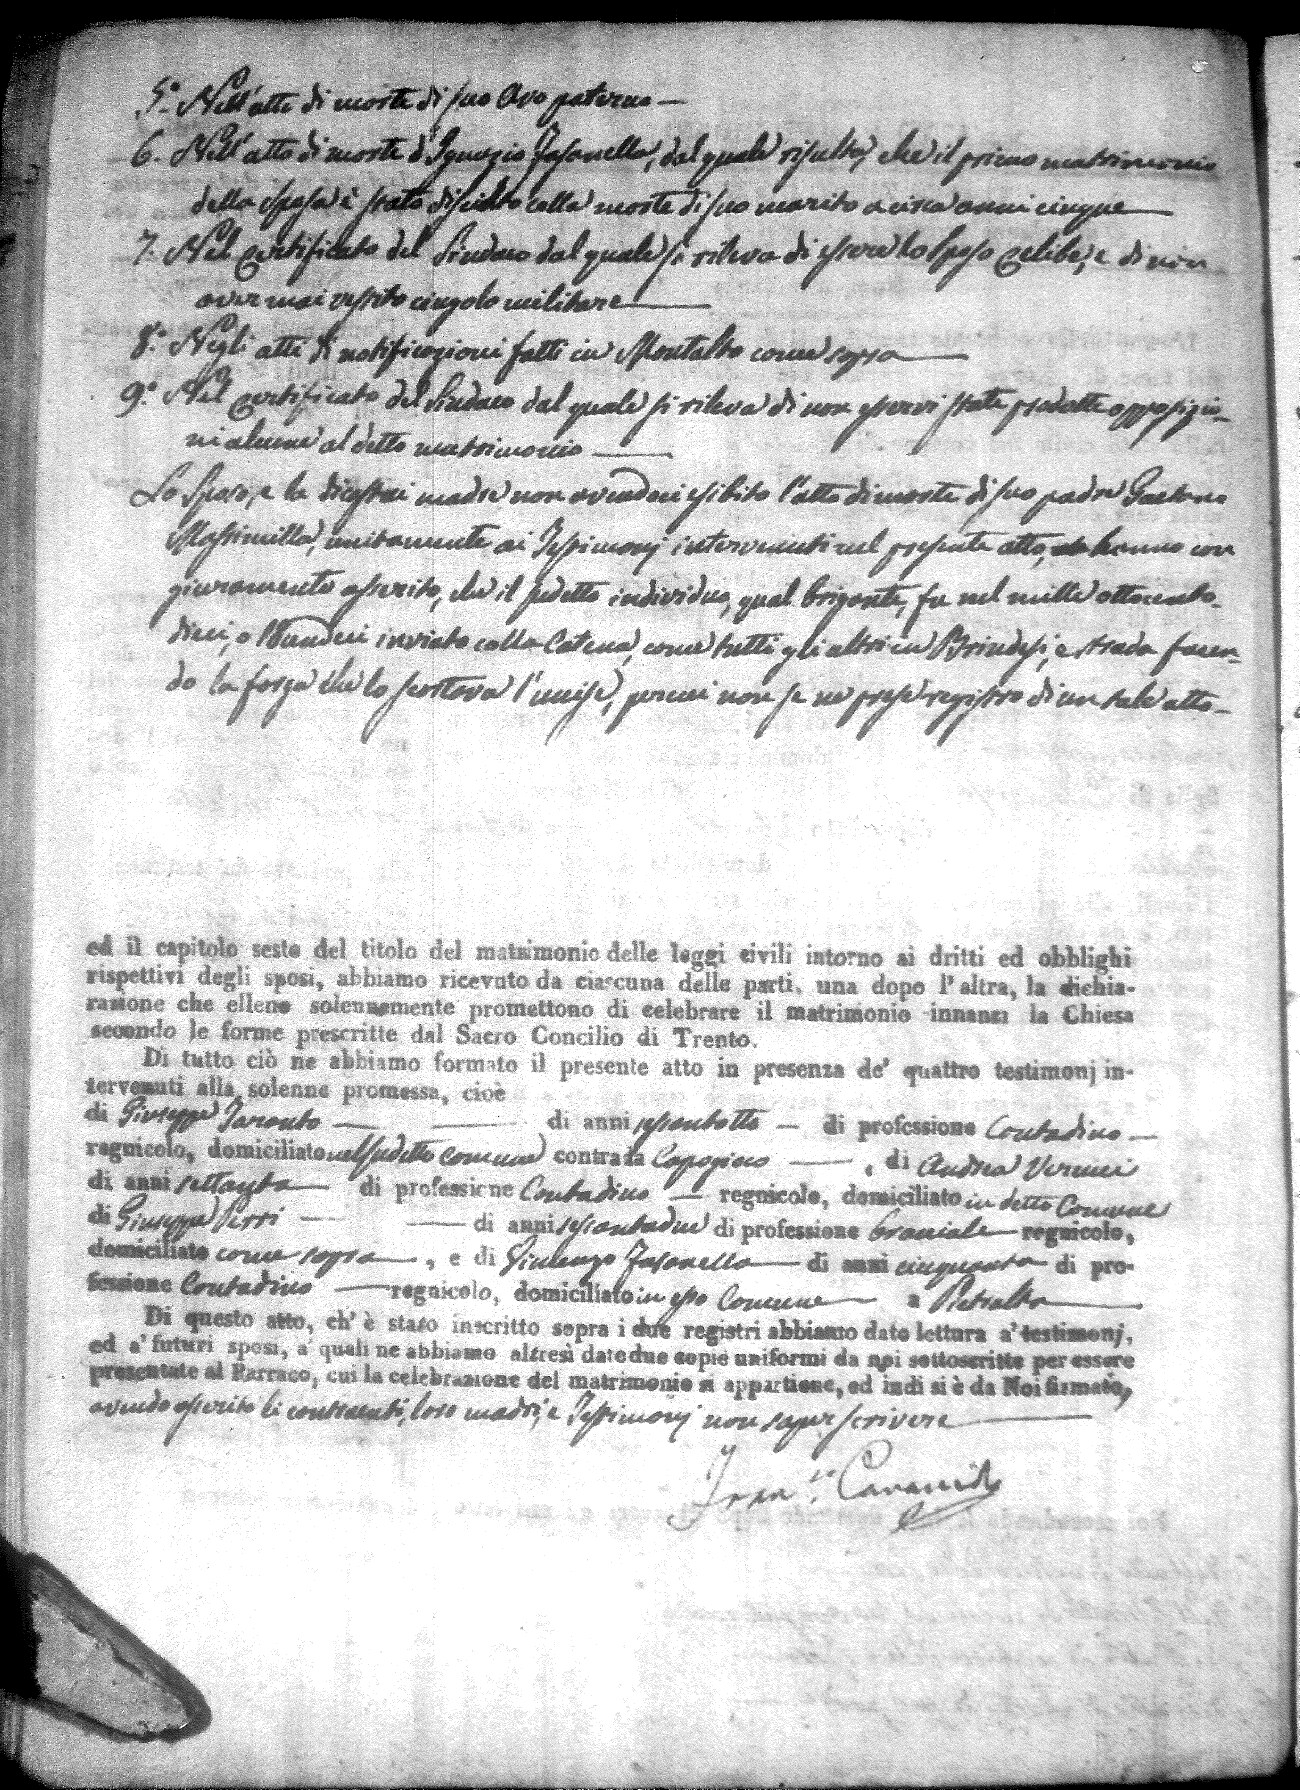 5.° Nell'atto di morte di suo Avo paterno —
6. Nell'atto di morte d'Ignazio Fasanella, dal quale risulta, che il primo matrimonio
della sposa è stato disciolto colla morte di suo marito a circa anni cinque —
7. Nel certificato del Sindaco dal quale si rileva di essere lo sposo celibe, e di non
aver mai vestito cingolo militare —
8.° Negli atti di notificazioni fatti in Montalto come sopra —
9.° Nel certificato del Sindaco dal quale si rileva di non esservi state prodotte opposizio-
ni alcune al detto matrimonio —
Lo Sposo, e la di costui madre non avendoci esibito l'atto di morte di suo padre Gaetano
Massimilla, unitamente ai Testimonj intervenuti nel presente atto, hanno con
giuramento asserito, che il sudetto individuo, qual brigante, fu nel mille ottocento-
dieci, o undeci inviato colla Catena, come tutti gli altri in Brindisi, e strada facen-
do la forza che lo scortava l'uccise, percui non se ne prese registro di un tale atto —
ed il capitolo sesto del titolo del matrimonio delle leggi civili intorno ai dritti ed obblighi
rispettivi degli sposi, abbiamo ricevuto da ciascuna delle parti, una dopo l'altra, la dichia-
razione che elleno solennemente promettono di celebrare il matrimonio innanzi la Chiesa
secondo le forme prescritte dal Sacro Concilio di Trento.
Di tutto ciò ne abbiamo formato il presente atto in presenza de' quattro testimonj in-
tervenuti alla solenne promessa, cioè
di Giuseppe Taranto — di anni sessantotto — di professione Contadino —
regnicolo, domiciliato nel sudetto Comune contrada Capogiesco — , di Andrea Vernici
di anni settanta — di professione Contadino — regnicolo, domiciliato in detto Comune
di Giuseppe Perri — di anni sessantadue di professione braciale — regnicolo,
domiciliato come sopra — , e di Vincenzo Fasanella — di anni cinquanta di pro-
fessione Contadino — regnicolo, domiciliato in esso Comune — a Pietralta —
Di questo atto, ch'è stato inscritto sopra i due registri abbiamo dato lettura a' testimonj,
ed a' futuri sposi, a' quali ne abbiamo altresì date due copie uniformi da noi sottoscritte per essere
presentate al Parraco, cui la celebrazione del matrimonio si appartiene, ed indi si è da Noi firmato,
avendo asserito li contraenti, loro madri, e Testimonj non saper scrivere —